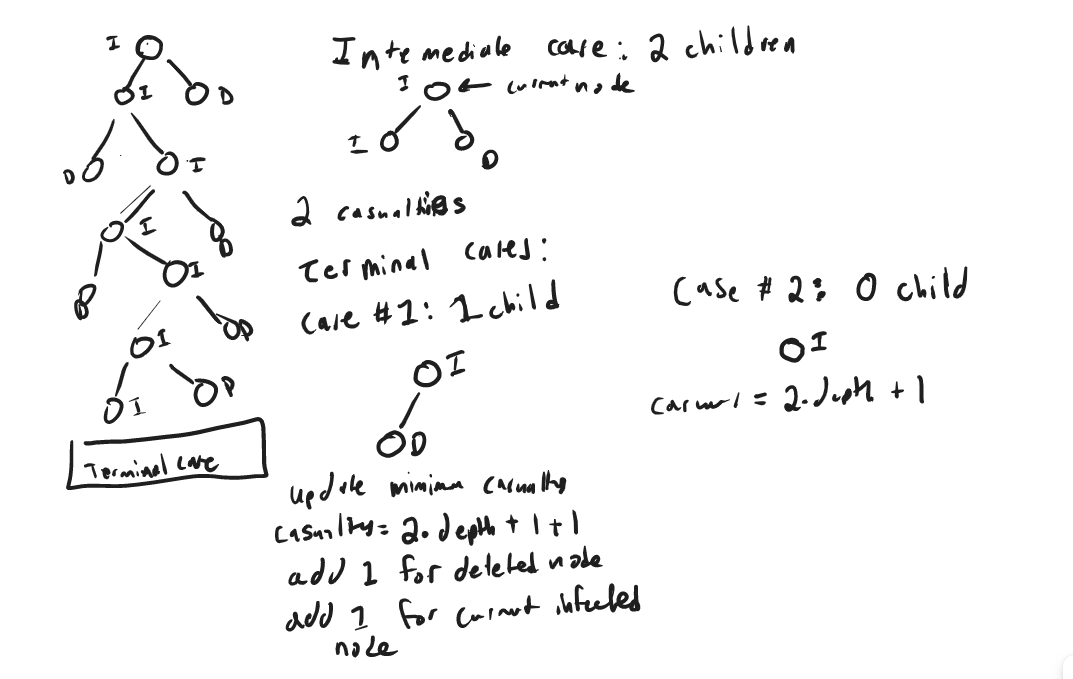 I
I
D
D
I
I
D
D
I
I
D
I
D
Terminal case
Intemediale case: 2 children
I
current node
I
D
2 casualties
Terminal cases:
Case #1: 1 child
I
D
update minimum casualty
casualty = 2. depth + 1 + 1
add 1 for deleted node
add 1 for current infected
node
Case # 2: 0 child
I
= 2. depth + 1